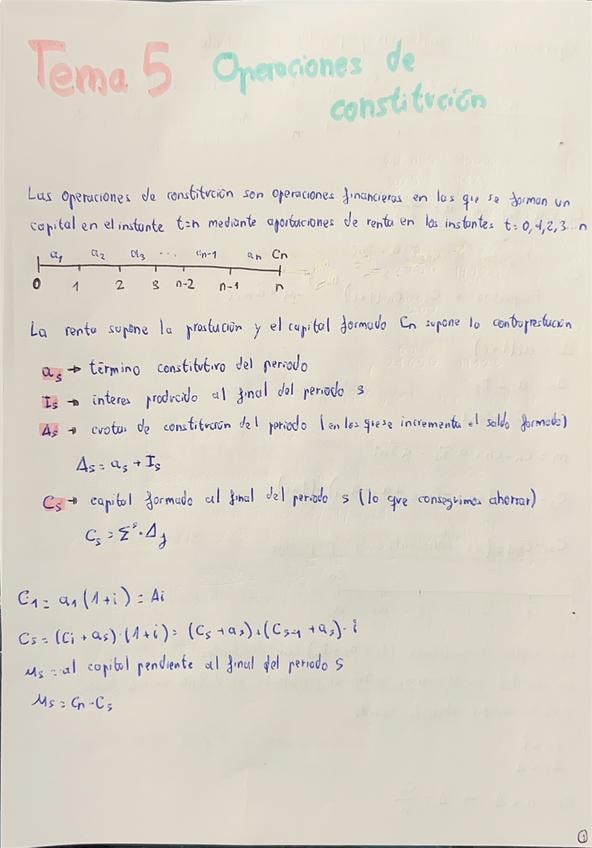 Tema 5 Operaciones de
constitución
Las operaciones de constitución son operaciones financieras en las que se forman un
capital en el instante t=n mediante aportaciones de renta en los instantes t=0,1,2,3...n
a₁ a₂ a₃ ... aₙ₋₁ aₙ Cₙ
0 1 2 3 n-2 n-1 n
La renta supone la prestación y el capital formado Cn supone la contraprestación
aₛ → término constitutivo del periodo
Iₛ → interes producido al final del periodo s
Δₛ → cuotas de constitución del periodo (en los que se incrementa el saldo formado)
Δₛ = aₛ + Iₛ
Cₛ → capital formado al final del periodo s (lo que conseguimos ahorrar)
Cₛ = Σˢ · Δⱼ
C₁ = a₁(1+i) = Ai
Cs = (Ci + aₛ)·(1+i) = (Cₛ + aₛ) + (Cₛ₋₁ + aₛ)·i
Ms = al capital pendiente al final del periodo s
Ms = Cn - Cₛ
1